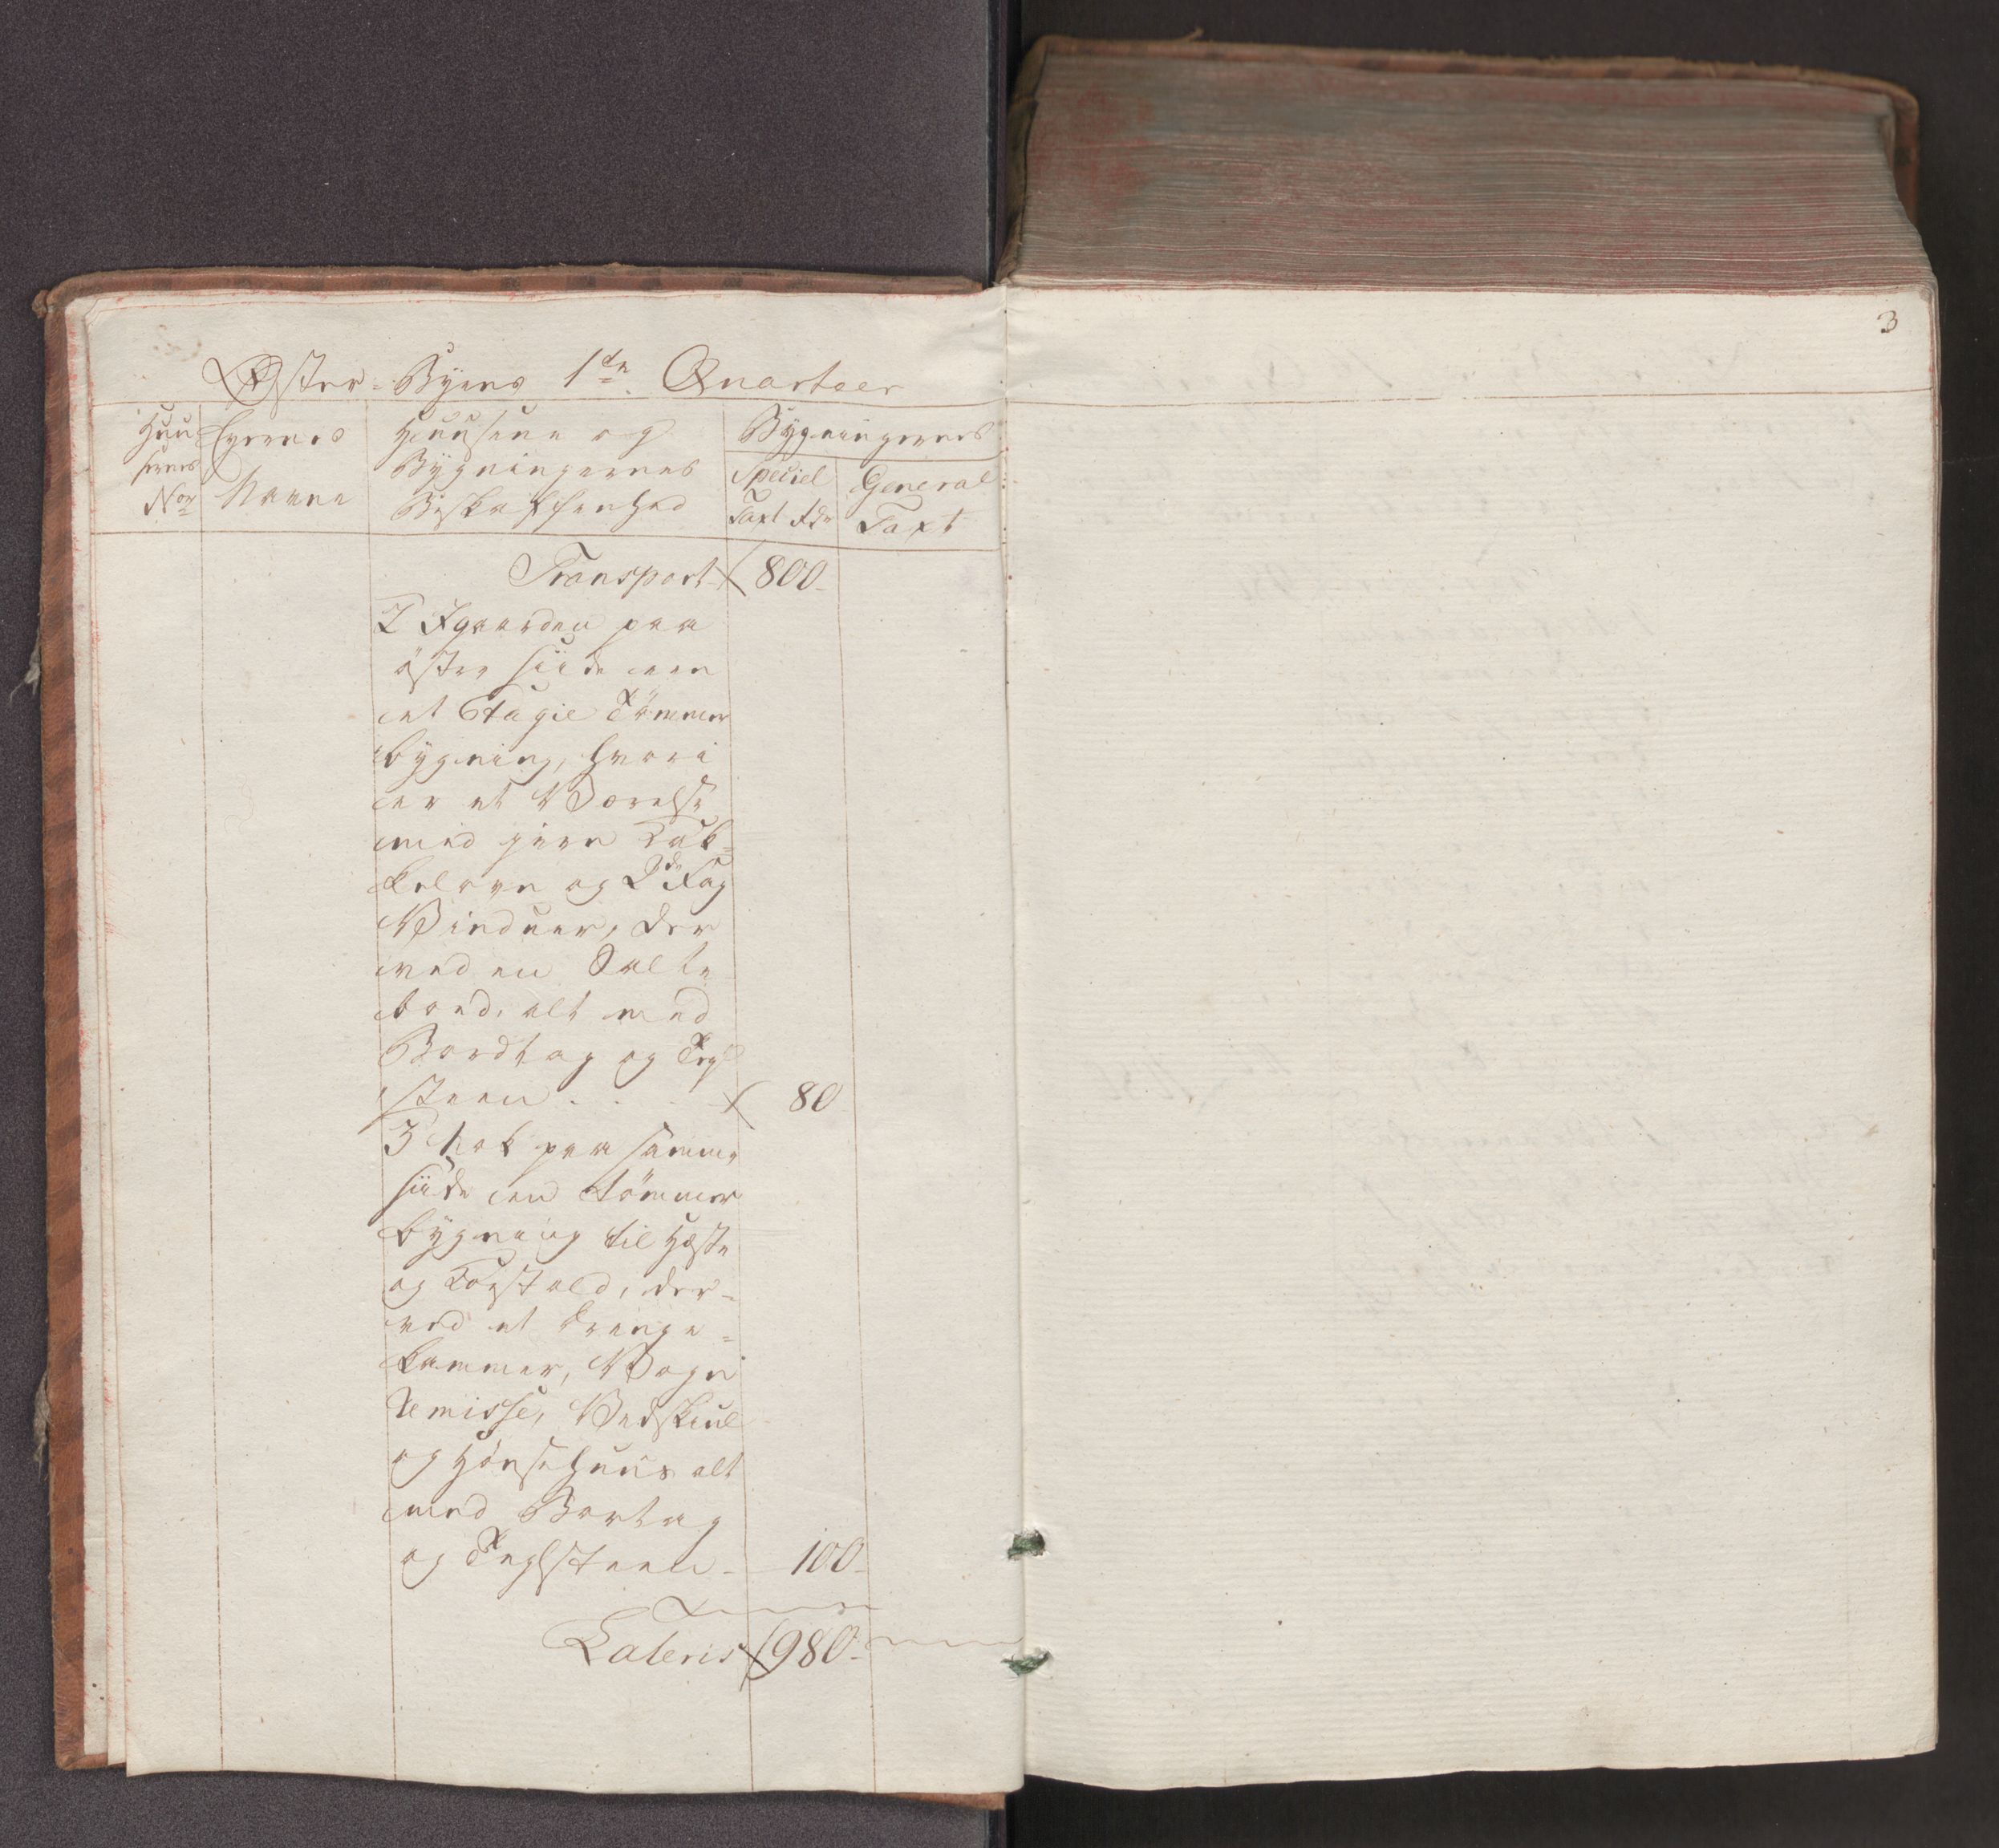 3
Øster-Byens 1ste Quarteer
Huu-
sernes
Nor
Eyernes
Navne
Huusene og
Bygningernes
Beskaffenhed
Bygningernes
Speciel
Taxt Rdr
General
Taxt
Transport 800-
2 I gaarden paa
öster siide een
eet Etagie Tömmer
bygning, hvori
er et Værelse
med jern Kak-
kelovn og 2de Fag
Vinduer, der
ved en Salte
boed, alt med
Bordtag og Tegl
steen . . . 80
3 Nok paa samme
siide een tömmer
bygning til Heste
og Foestald, der-
ved et Drenge-
kammer, Vogn
Remisse, Vedskiul
og Hönsehuus alt
med Bortag
og Teglsteen - 100-
Lateris 980-